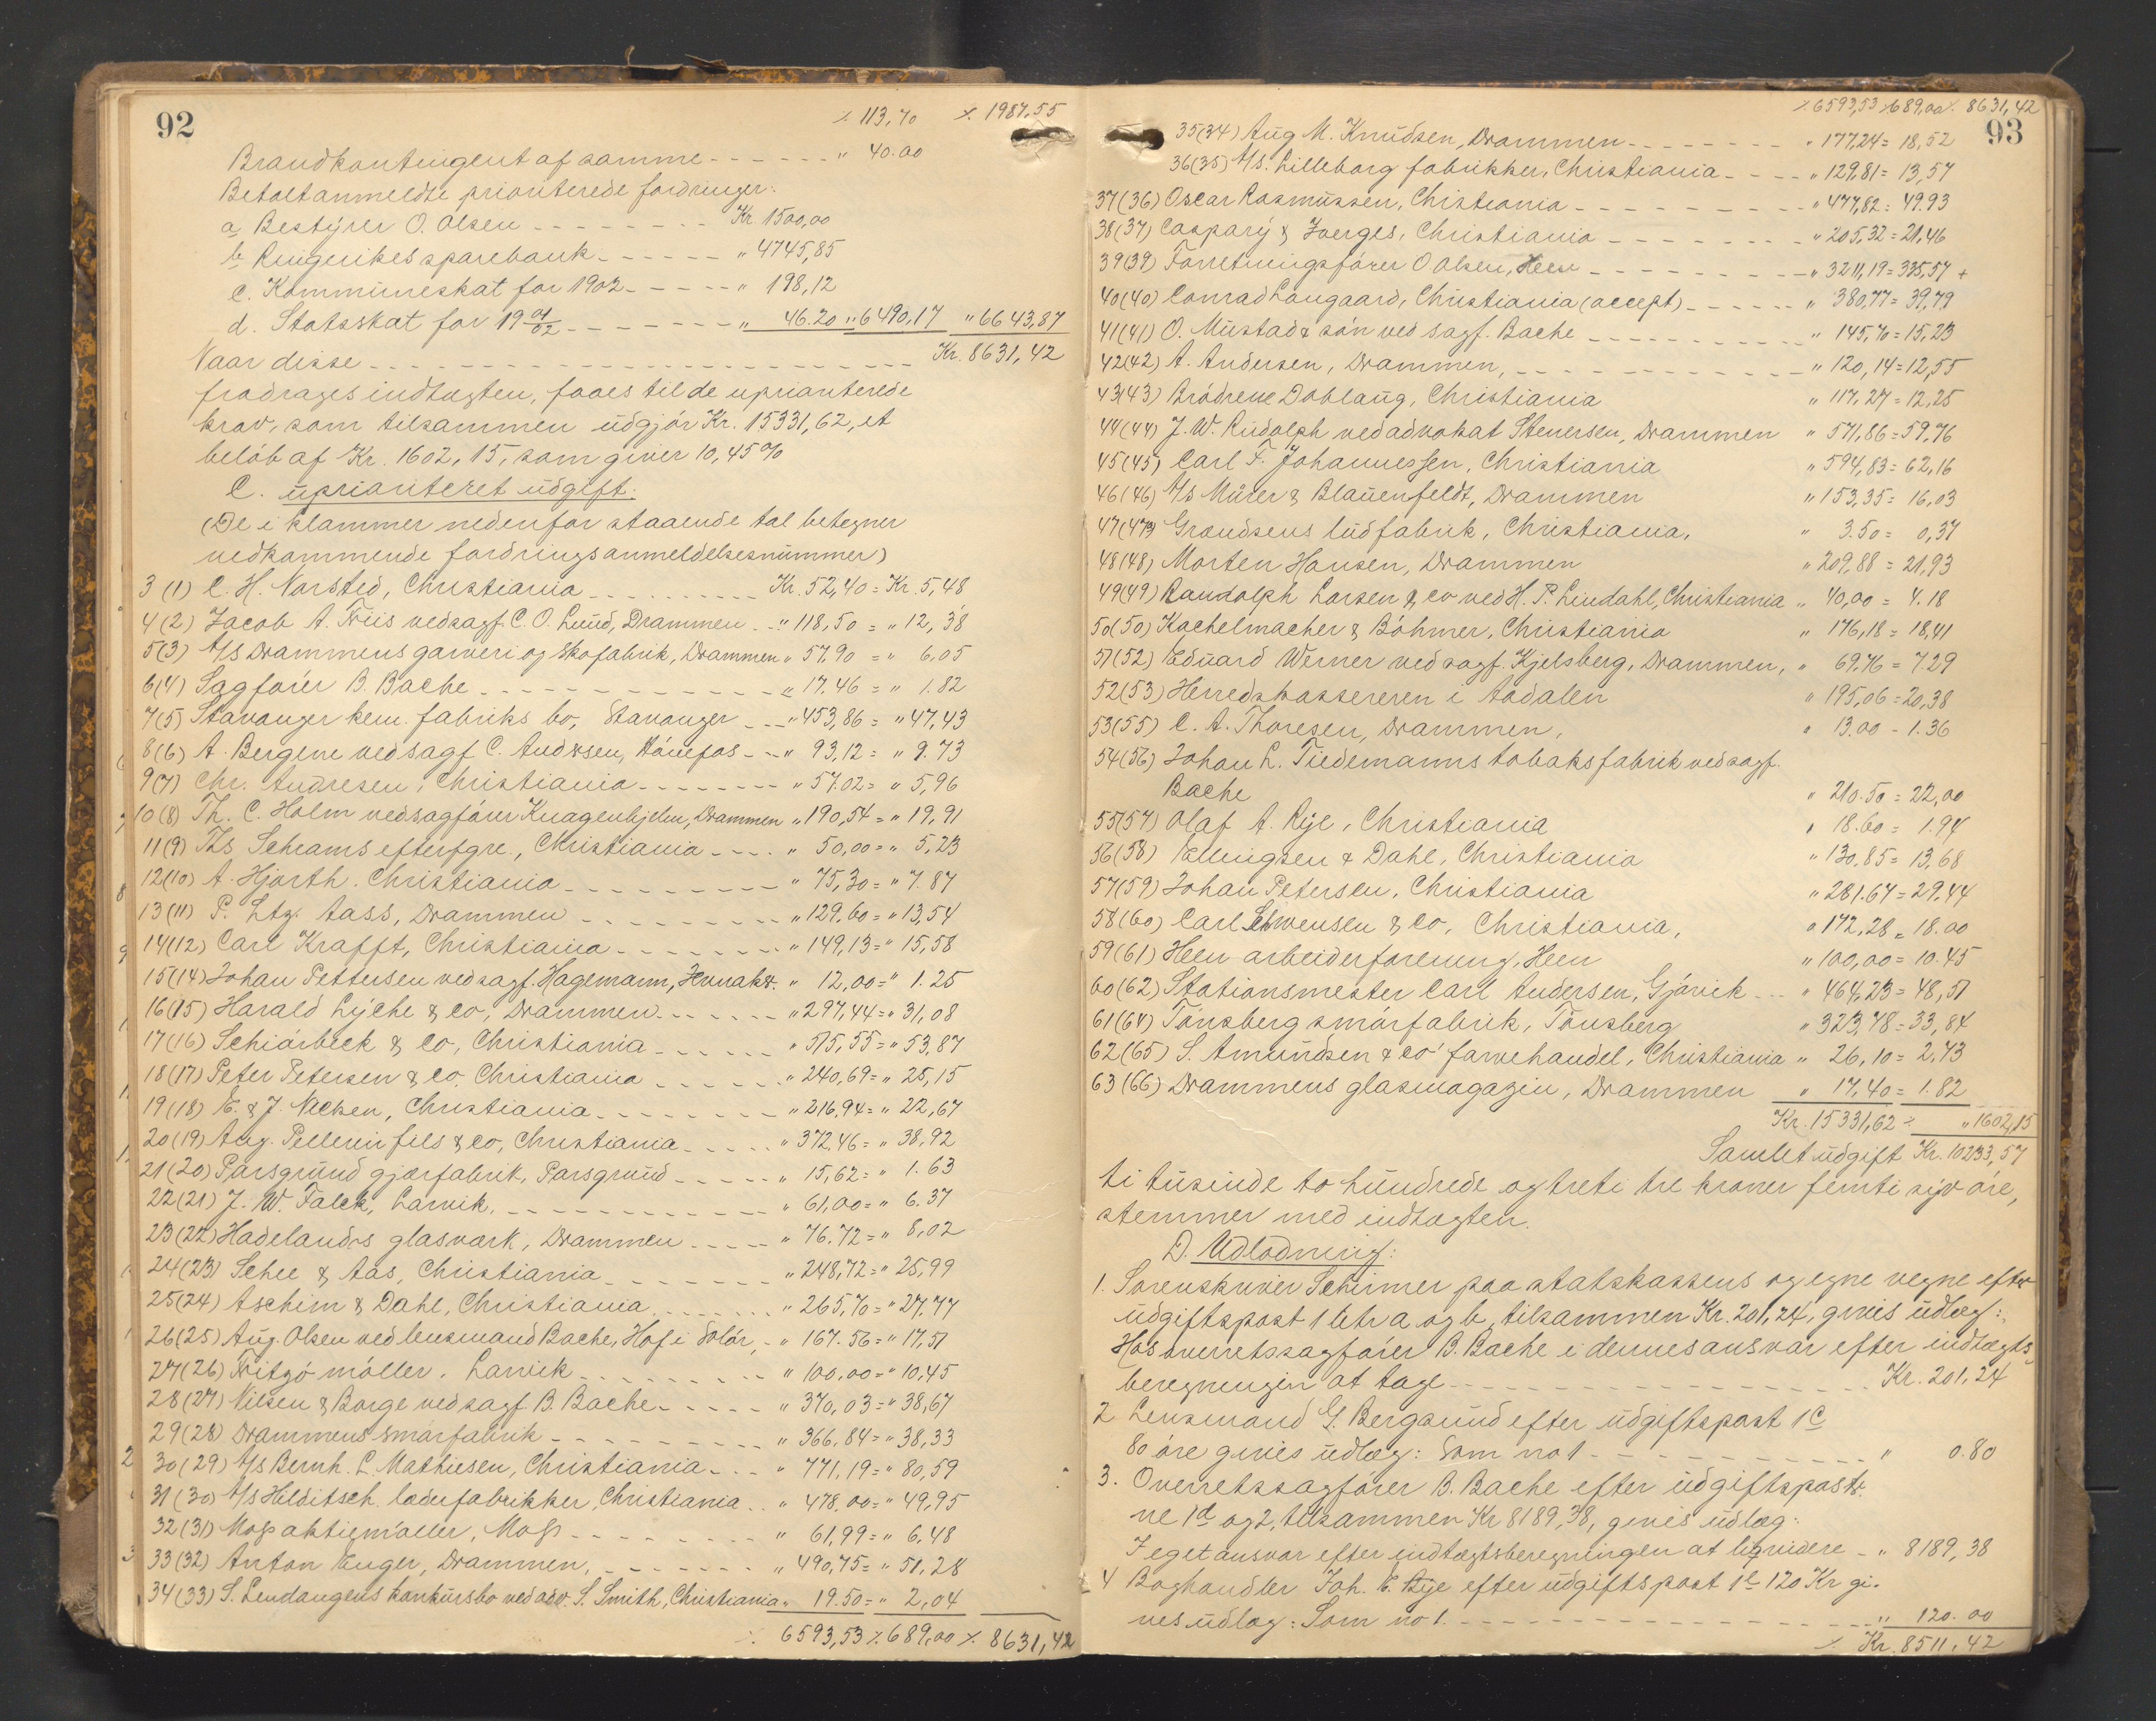 92
٪ 113,70 ٪ 1987,55
Brandkontingent af samme - - - - - - „ 40.00
Betalt anmeldte prioriterede fordringer:
a Bestýrer O. Olsen - - - - - - - - Kr. 1500,00
b Ringerikes sparebank - - - - - - „ 4745,85
c. Kommuneskat for 1902 - - - - - „ 198,12
d. Statsskat for 19 01/02 - - - - - - - - „ 46.20 „ 6490,17 „ 6643,87
Naar disse - - - - - - - - - - - - - - - - - - - - - - Kr. 8631,42
fradrages indtægten, faaes til de uprioriterede
krav, som tilsammen udgjör Kr. 15331,62, et
belöb af Kr. 1602,15, som giver 10,45%
C. uprioriteret udgift:
(De i klammer nedenfor staaende tal betegner
vedkommende fordringsanmeldelsesnummer)
3 (1) C. H. Narsted, Christiania - - - - - - - - - Kr. 52,40 = Kr. 5,48
4 (2) Jacob A. Friis ved sagf. C. O. Lund, Drammen - - „ 118,50 = „ 12,38
5 (3) A/S Drammens garveri og Skofabrik, Drammen „ 57,90 = „ 6,05
6 (4) Sagförer B. Bache - - - - - - - - - - - - - „ 17.46 = „ 1.82
7 (5) Stavanger kem. fabriks bo, Stavanger - - - „ 453,86 = „ 47,43
8 (6) A. Bergene ved sagf C. Andersen, Hönefos - - „ 93,12 = „ 9.73
9 (7) Chr. Andresen, Christiania - - - - - - - - „ 57.02 = „ 5,96
10 (8) Th. C. Holm ved sagförer Knagenhjelm, Drammen „ 190,54 = „ 19,91
11 (9) Ths Schrams efterfgre., Christiania - - - - „ 50,00 = „ 5,23
12 (10) A. Hjorth. Christiania - - - - - - - - - - „ 75,30 = „ 7.87
13 (11) P. Ltz. Aass, Drammen - - - - - - - - - - „ 129.60 = „ 13,54
14 (12) Carl Krafft, Christiania - - - - - - - - „ 149,13 = „ 15,58
15 (14) Johan Pettersen ved sagf. Hagemann, „ 12,00 = „ 1.25
16 (15) Harald Lýche & co, Drammen - - - - - - „ 297,44 = „ 31,08
17 (16) Schiörbeck & Co, Christiania - - - - - - „ 515,55 = „ 53,87
18 (17) Peter Petersen & co. Christiania - - - - - „ 240,69 = „ 25,15
19 (18) E. & J. Nicksen, Christiania - - - - - - - „ 216,94 = „ 22,67
20 (19) Aug. Pellerin fils & co, Christiania - - - - „ 372,46 = „ 38,92
21 (20) Porsgrund gjærfabrik, Porsgrund - - - - - „ 15,62 = „ 1.63
22 (21) J. W. Falck, Larvik. - - - - - - - - - - - „ 61,00 = „ 6.37
23 (22) Hadelands glasværk, Drammen - - - - „ 76.72 = „ 8,02
24 (23) Schee & Aas, Christiania - - - - - - - „ 248,72 = „ 25,99
25 (24) Aschim & Dahl, Christiania - - - - - - - „ 265,70 = „ 27.77
26 (25) Aug. Olsen ved lensmand Bache, Hof i Solör, - „ 167.56 = „ 17,51
27 (26) Fritzö möller. Larvik - - - - - - - - - „ 100,00 = „ 10,45
28 (27) Nilsen & Borge ved sagf. B. Bache - - - - - „ 370,03 = „ 38,67
29 (28) Drammens smörfabrik - - - - - - - - - „ 366.84 = „ 38,33
30 (29) A/S Bernh. L. Mathiesen, Christiania - - - „ 771,19 = „ 80,59
31 (30) A/S Hilditsch. læderfabrikker, Christiania - - „ 478,00 = „ 49,95
32 (31) Moss aktiemöller, Moss - - - - - - - - - „ 61,99 = „ 6,48
33 (32) Anton Enger, Drammen, - - - - - - - „ 490,75 = „ 51,28
34 (33) S. Lendangens konkursbo ved adv. S. Smith, Christiania „ 19.50 = „ 2,04
٪ 6593,53 ٪ 689,00 ٪ 8631,42
٪ 6593,53 ٪ 689,00 ٪ 8631,42
93
35 (34) Aug M. Knudsen, Drammen - - - - - - - - „ 177,24 = 18,52
36 (35) A/S. Lilleborg fabrikker, Christiania - - - - „ 129,81 = 13,57
37 (36) Oscar Rasmussen, Christiania - - - - - - - - - - „ 477,82 = 49.93
38 (37) Caspary & Joerges, Christiania - - - - - - - - „ 205,32 = 21,46
39 (39) Forretningsförer O Olsen, Heen - - - - - - - - - - „ 3211,19 = 335,57 +
40 (40) Conrad Langaard, Christiania (accept) - - - - - - „ 380,77 = 39,79
41 (41) O. Mustad & sön ved sagf. Bache - - - - - - - - - - „ 145,70 = 15,23
42 (42) A. Andersen, Drammen, - - - - - - - - - - - - „ 120,14 = 12,55
43 (43) Brödrene Dobloug, Christiania „ 117,27 = 12,25
44 (44) J. W. Rudolph ved advokat Stenersen, Drammen „ 571,86 = 59,76
45 (45) Carl F. Johannessen, Christiania „ 594,83 = 62,16
46 (46) A/S Mürer & Blauenfeldt, Drammen „ 153,35 = 16,03
47 (47) Grandsens ludfabrik, Christiania, „ 3.50 = 0,37
48 (48) Morten Hansen, Drammen „ 209,88 = 21,93
49 (49) Randolph Larsen & co ved H. P. Lindahl, Christiania „ 40,00 = 4.18
50 (50) Kachelmacher & Böhmer, Christiania „ 176,18 = 18,41
51 (52) Eduard Werner ved sagf. Kjelsberg, Drammen, „ 69.76 = 7.29
52 (53) Herredskassereren i Aadalen „ 195,06 = 20,38
53 (55) C. A. Thoresen, Drammen, „ 13.00 - 1.36
54 (56) Johan L. Tiedemanns tobaksfabrik ved sagf.
Bache „ 210.50 = 22,00
55 (57) Olaf A. Rye, Christiania „ 18.60 = 1.94
56 (58) Ellingsen & Dahl, Christiania „ 130,85 = 13,68
57 (59) Johan Petersen, Christiania „ 281.67 = 29.44
58 (60) Carl Schwensen & co, Christiania, „ 172,28 = 18.00
59 (61) Heen arbeiderforening, Heen „ 100,00 = 10.45
60 (62) Stationsmester Carl Andersen, Gjövik - - - „ 464,23 = 48,51
61 (64) Tönsberg smörfabrik, Tönsberg „ 323,78 = 33,84
62 (65) S. Amundsen & co' farvehandel, Christiania „ 26,10 = 2,73
63 (66) Drammens glasmagazin, Drammen „ 17,40 = 1.82
Kr. 15331,62 = „ 1602,15
Samlet udgift Kr. 10233,57
ti tusinde to hundrede og treti tre kroner femti syv öre,
stemmer med indtægten.
D. Udlodning:
1. Sorenskriver Schirmer paa statskassens og egne vegne efter
udgiftspost 1 litr a og b, tilsammen Kr. 201,24, gives udlæg:
Hos overretssagförer B. Bache i dennes ansvar efter indtægts-
beregningen at tage - - - - - - - - - - - - - - - - - - Kr. 201,24
2 Lensmand G. Bergsund efter udgiftspost 1c
80 öre gives udlæg: Som no 1 - - - - - - - - - - - „ 0.80
3. Overretssagförer B. Bache efter udgiftspostr.
ne 1d og 2, tilsammen Kr 8189,38, gives udlæg:
I eget ansvar efter indtægtsberegningen at likvidere - „ 8189,38
4 Boghandler Joh. E. Rye efter udgiftspost 1e 120 Kr gi-
ves udlæg: Som no 1. - - - - - - - - - - - - - - - - „ 120.00
٪ Kr. 8511,42